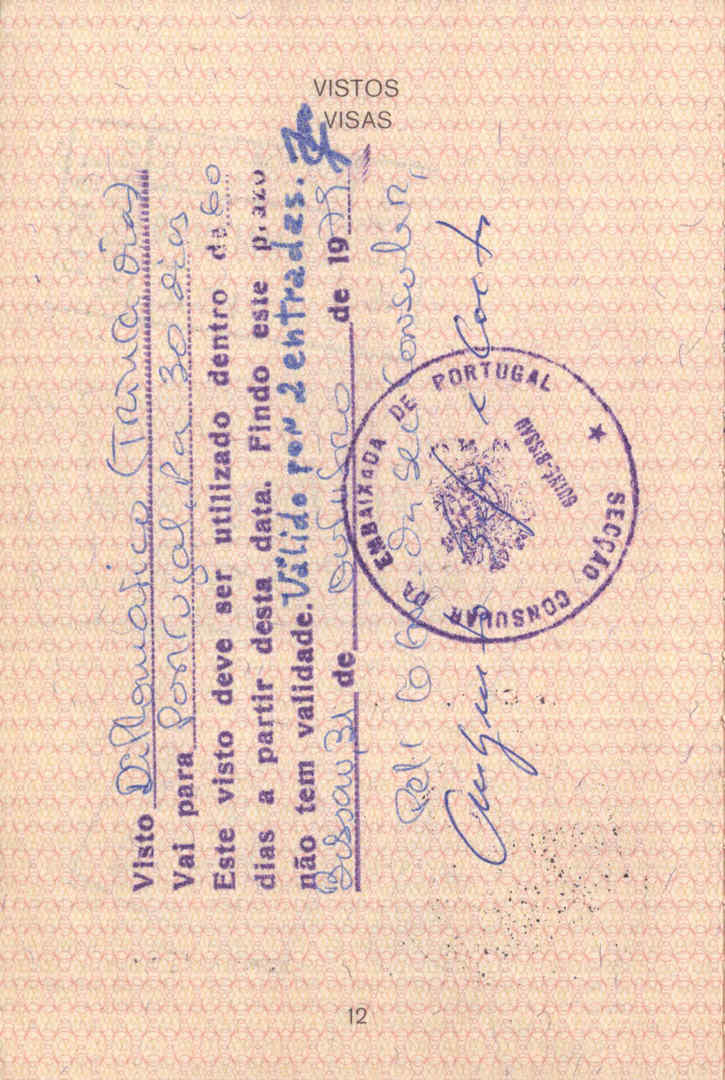 VISTOS
VISAS
Visto Diplomatico (Trinta dias)
Vai para Portugal. Pa 30 dias
Este visto deve ser utilizado dentro de 60
dias a partir desta data. Findo este prazo
não tem validade. Válido por 2 entradas.
Bissau, 31 de Outubro de 19
Consular,
SECÇÃO CONSULAR DA EMBAIXADA DE PORTUGAL
GUINÉ-BISSAU
12